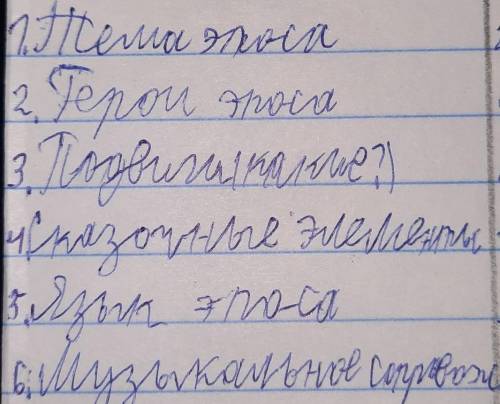 1. Тема эпоса
2. Герои эпоса
3. Подвиги (какие?)
4. Сказочные элементы
5. Язык эпоса
6. Музыкальное сопровож